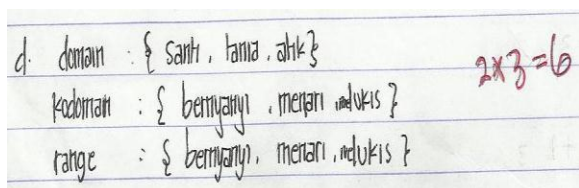 d. domain : { santi, tania, atik }
2x3=6
kodomain : { bernyanyi, menari, melukis }
range : { bernyanyi, menari, melukis }